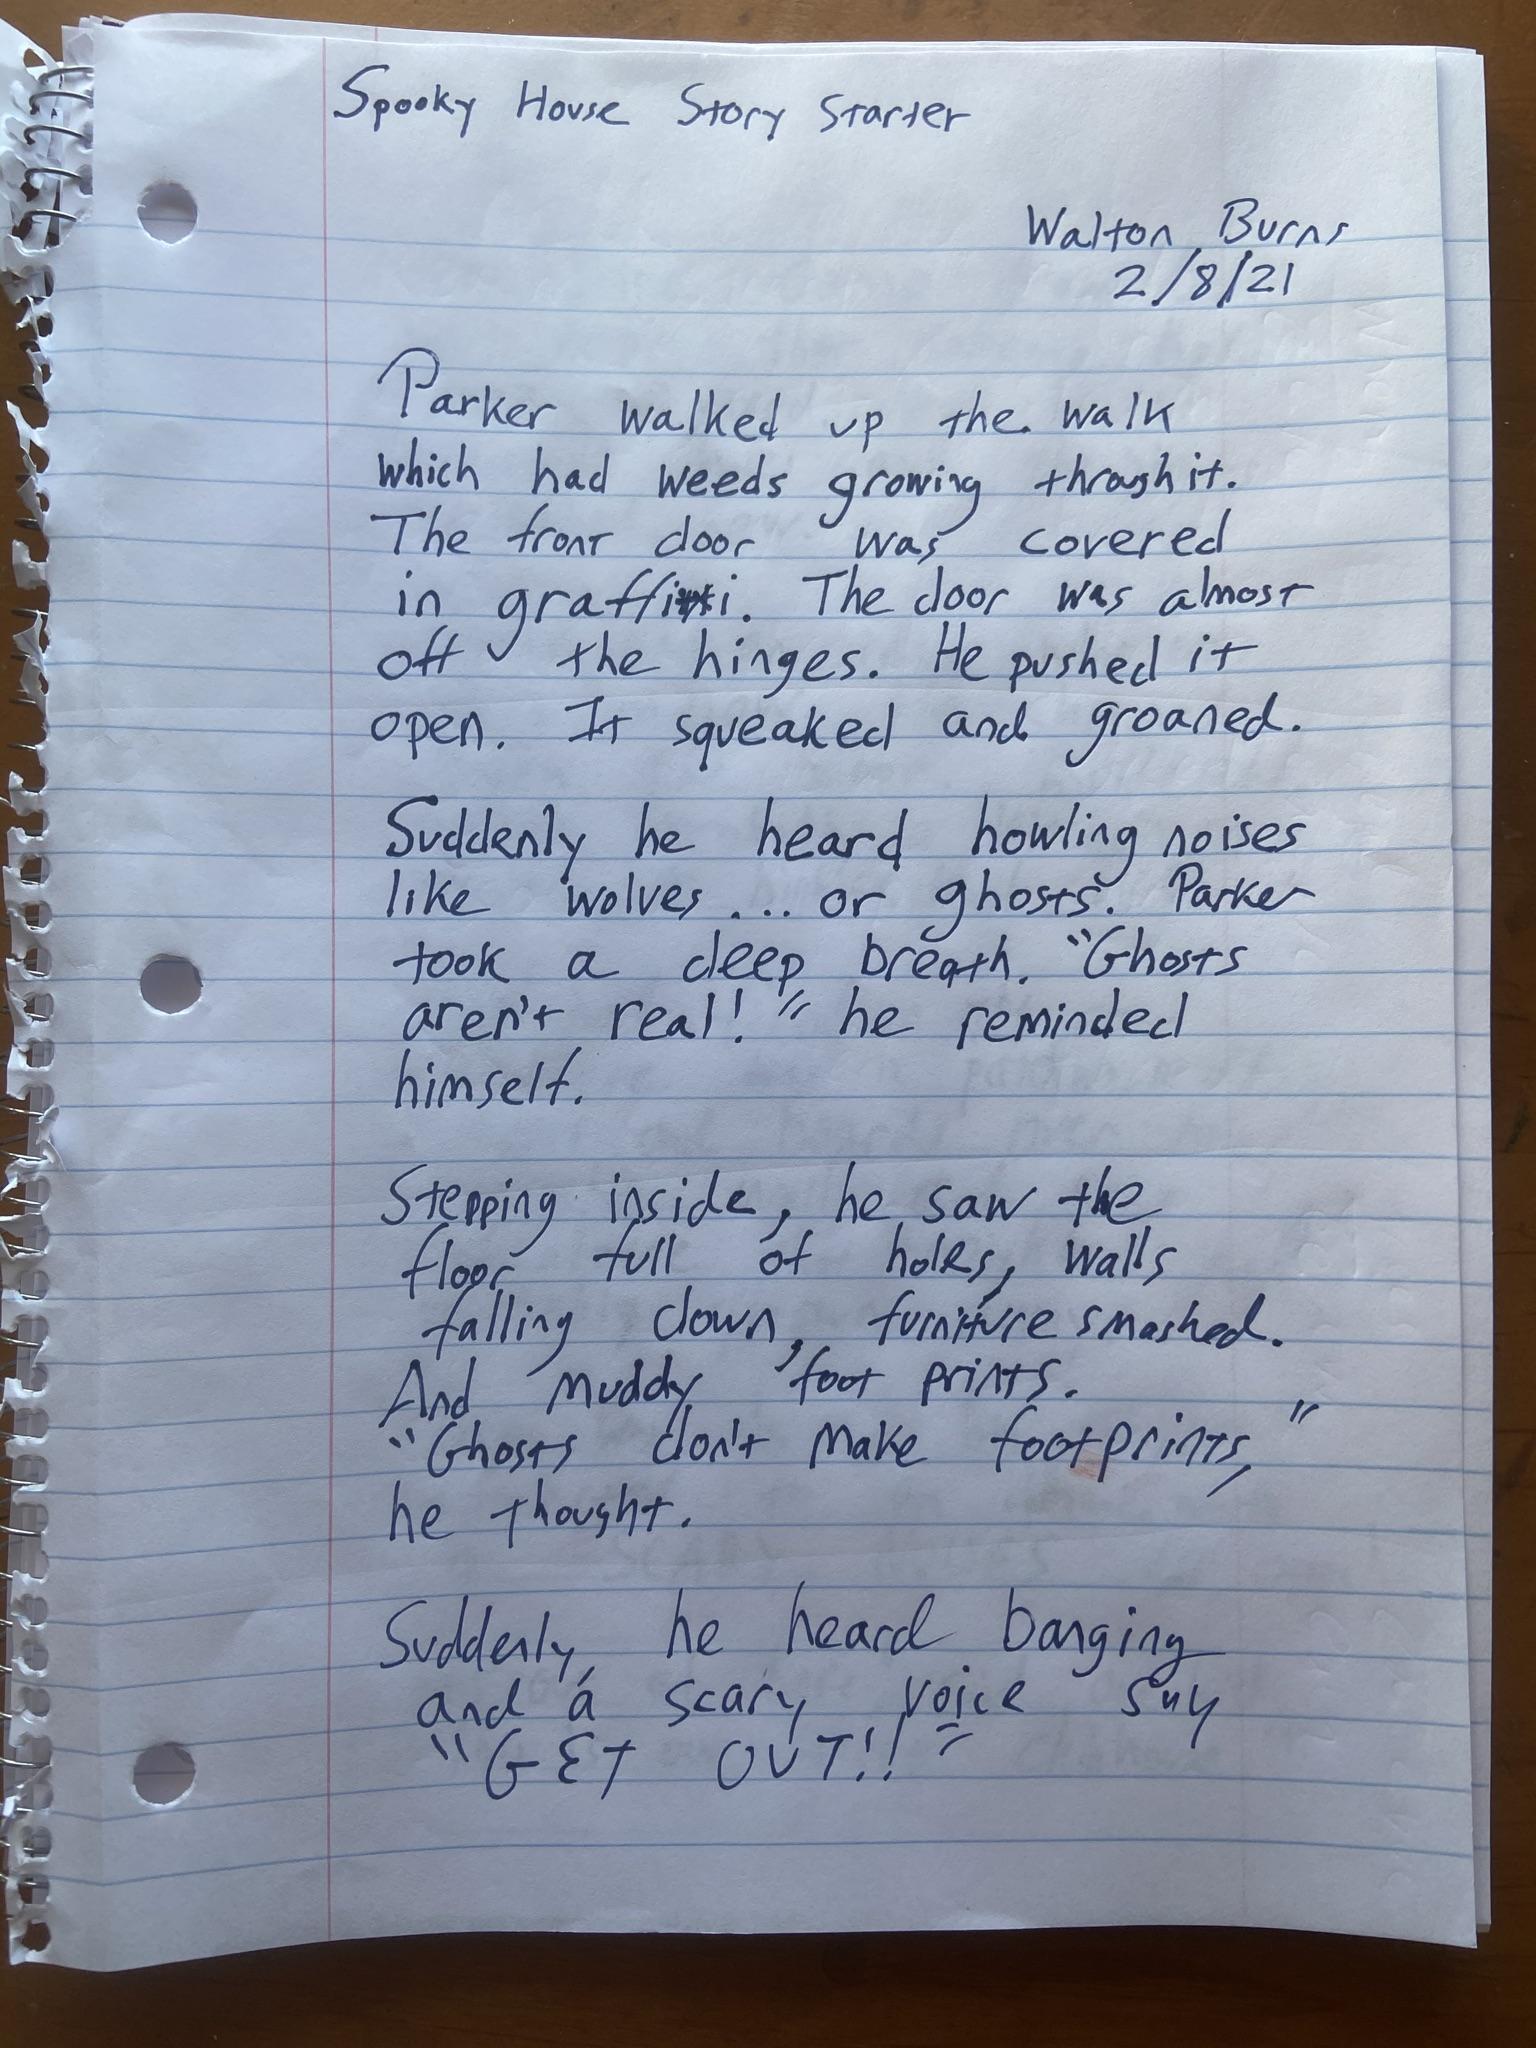 Spooky House Story Starter
Walton Burns
2/8/21
Parker walked up the walk
which had weeds growing through it.
The front door was covered
in graffiti. The door was almost
off the hinges. He pushed it
open. It squeaked and groaned.
Suddenly he heard howling noises
like wolves... or ghosts. Parker
took a deep breath. "Ghosts
aren't real!" he reminded
himself.
Stepping inside, he saw the
floor full of holes, walls
falling down, furniture smashed.
And muddy foot prints.
"Ghosts don't make footprints,"
he thought.
Suddenly, he heard banging
and a scary voice say
"GET OUT!!"